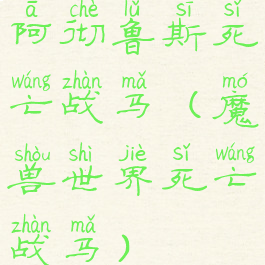 ā chè lǔ sī sǐ
阿彻鲁斯死
wáng zhàn mǎ mó
亡战马（魔
shòu shì jiè sǐ wáng
兽世界死亡
zhàn mǎ
战马）